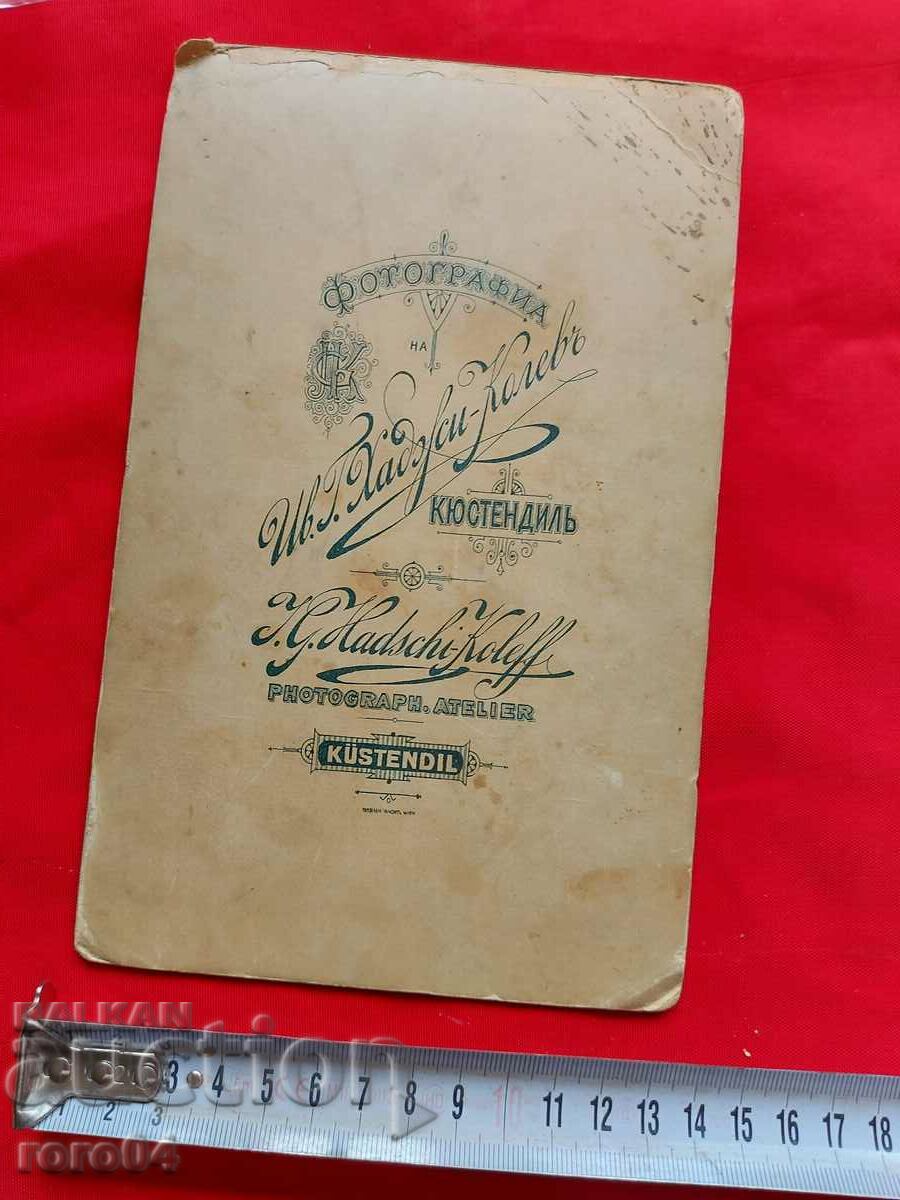 ФОТОГРАФИА
НА
Ив. Г. Хаджи-Колевъ
КЮСТЕНДИЛЬ
J. G. Hadschi-Koleff
PHOTOGRAPH. ATELIER
KÜSTENDIL
BALKAN
auction
roro04
1 2 3
3 4 5 6 7 8 9 10 11 12 13 14 15 16 17 18